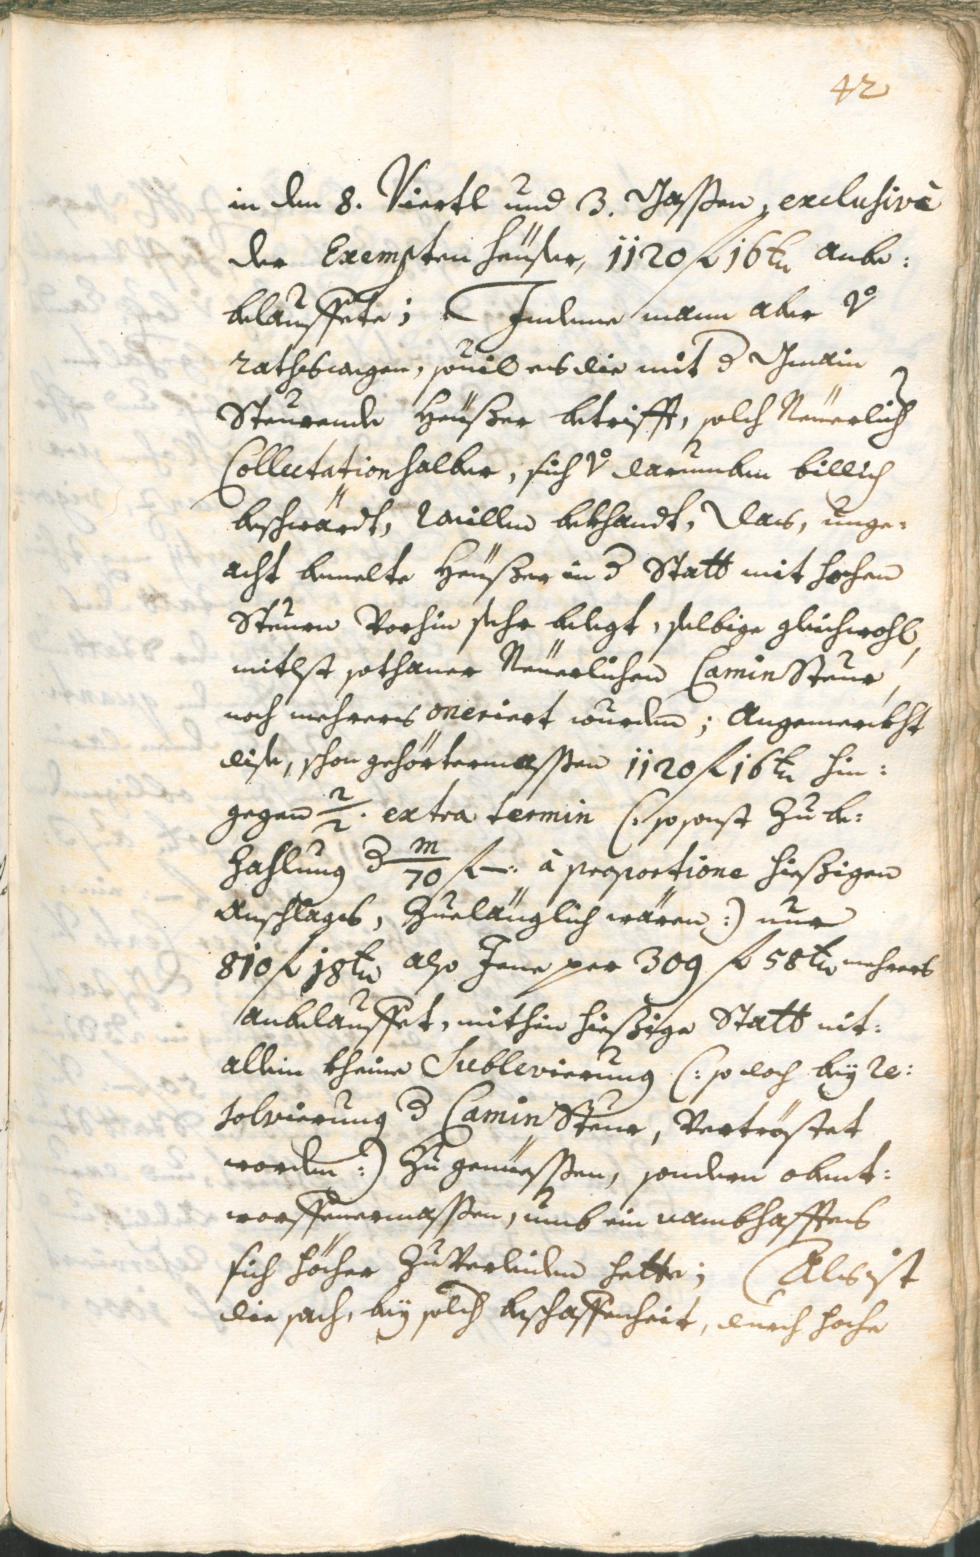 42
in den 8. Viertl und 3. Gassen, exclusivè
der Exempten heüser, 1120 f 16 kr anbe:
belauffete; Indeme mann aber
rathswegen, souil es die mit d Gmain
Steurende Heüßer betrifft, solch Neüerlich
Collectation halber, sich darumben billich
beschwärdt, weillen bekhandt, das, unge:
acht bemelte Heüßer in d Statt mit hochen
Steurn vorhin sehr belegt, selbige gleichwohl,
mitlst sothaner Neüerlichen Camin Steur,
noch mehrers oneriert wurden; Angemerckht
dise, schon gehörtermassen 1120 f 16 kr hin:
gegen 2/2. extra termin (: so sonst zu be:
zahlung d m/70 f —: à proportione hießigen
Anschlags, zuelänglich wären :) nur
810 f 18 kr also Jene per 309 f 58 kr mehrers
anbelauffet, mithin hießige Statt nit:
allein kheine Sublevierung (: so doch bey re:
solvierung d Camin Steur, vertröstet
worden :) zu geniessen, sondern obent:
worffenermassen, umb ein nambhafftes
sich höcher zu verleiden hette; Als ist
die sach, bey solch beschaffenheit, durch hoche